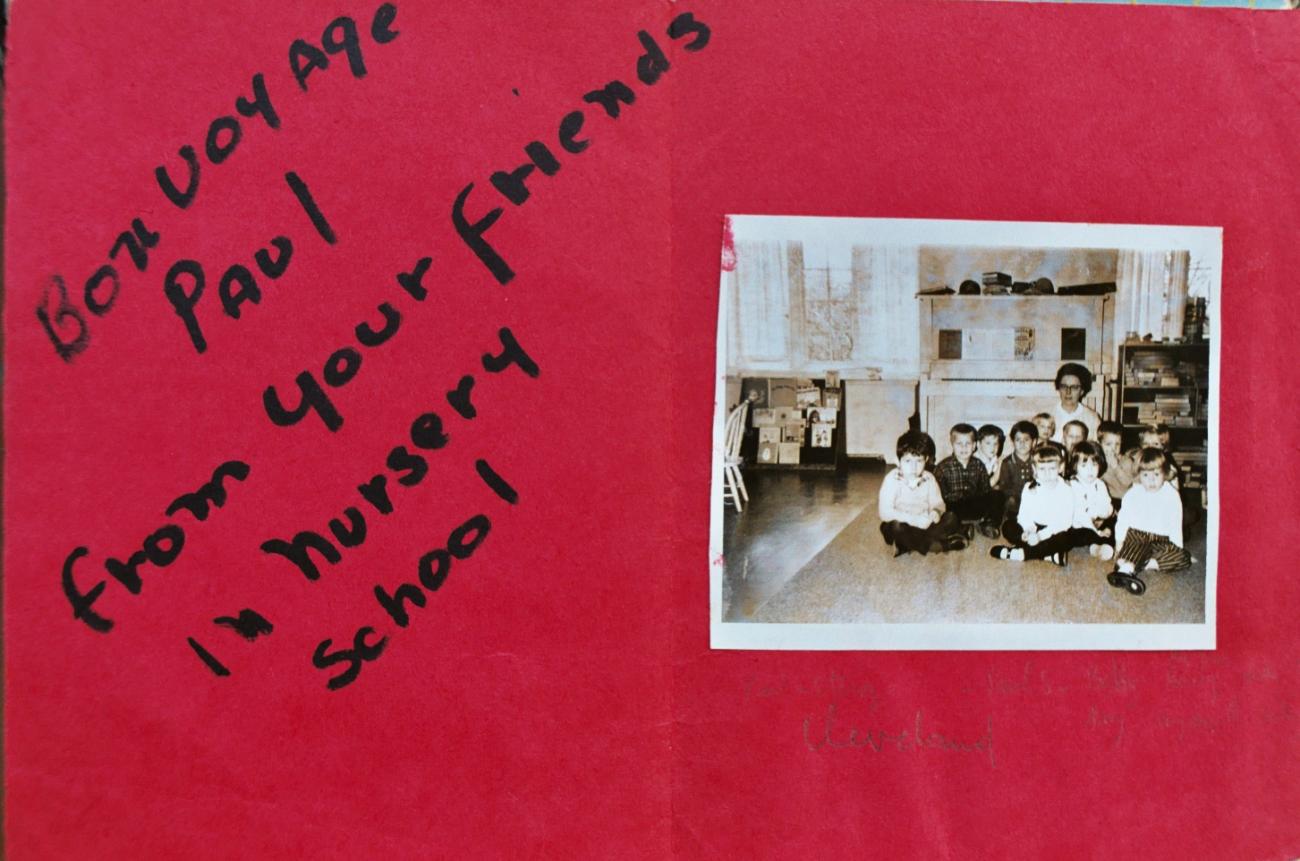 Bon Voyage
Paul
From your Friends
In Nursery
School
Cleveland